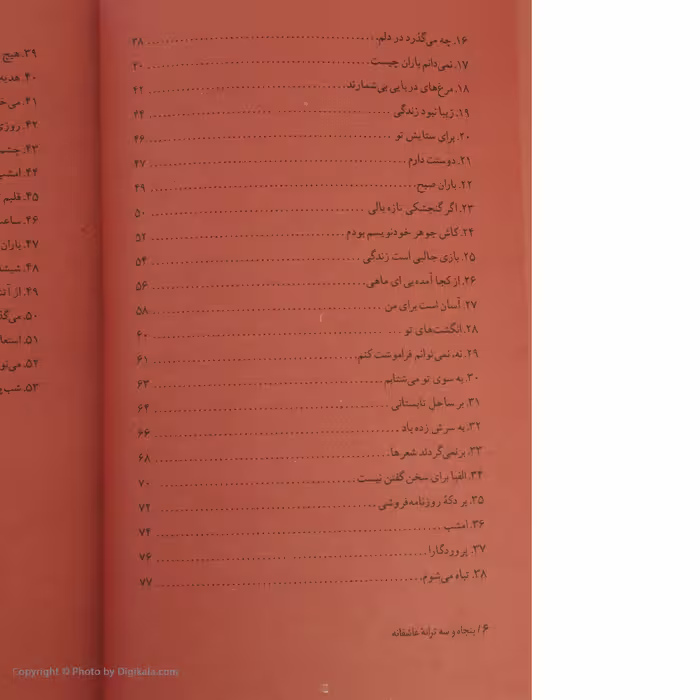 ۱۶. چه می‌گذرد در دلم ۳۸
۱۷. نمی‌دانم باران چیست ۴۰
۱۸. مرغ‌های دریایی بی‌شمارند ۴۲
۱۹. زیبا نبود زندگی ۴۴
۲۰. برای ستایش تو ۴۶
۲۱. دوستت دارم ۴۷
۲۲. باران صبح ۴۹
۲۳. اگر گنجشکی تازه بالی ۵۰
۲۴. کاش جوهر خودنویسم بودم ۵۲
۲۵. بازی جالبی است زندگی ۵۴
۲۶. از کجا آمده‌یی ای ماهی ۵۶
۲۷. آسان است برای من ۵۸
۲۸. انگشت‌های تو ۶۰
۲۹. نه، نمی‌توانم فراموشت کنم ۶۱
۳۰. به سوی تو می‌شتابم ۶۳
۳۱. بر ساحل تابستانی ۶۴
۳۲. به سرش زده باد ۶۶
۳۳. برنمی‌گردند شعرها ۶۸
۳۴. الفبا برای سخن گفتن نیست ۷۰
۳۵. بر دکهٔ روزنامه‌فروشی ۷۲
۳۶. امشب ۷۴
۳۷. پروردگارا ۷۶
۳۸. تباه می‌شوم ۷۷
۶ / پنجاه و سه ترانهٔ عاشقانه
۳۹. هیچ
۴۰. هدیه
۴۱.
۴۲.
۴۳.
۴۴. امشب
۴۵. قلبم
۴۶.
۴۷. باران
۴۸.
۴۹. از
۵۰.
۵۱.
۵۲.
۵۳.
Copyright © Photo by Digikala.com